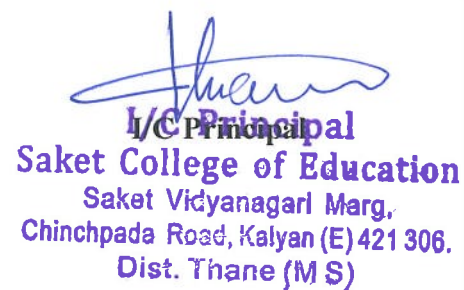 I/C Principal
I/C Principal
Saket College of Education
Saket Vidyanagari Marg,
Chinchpada Road, Kalyan (E) 421 306.
Dist. Thane (M S)